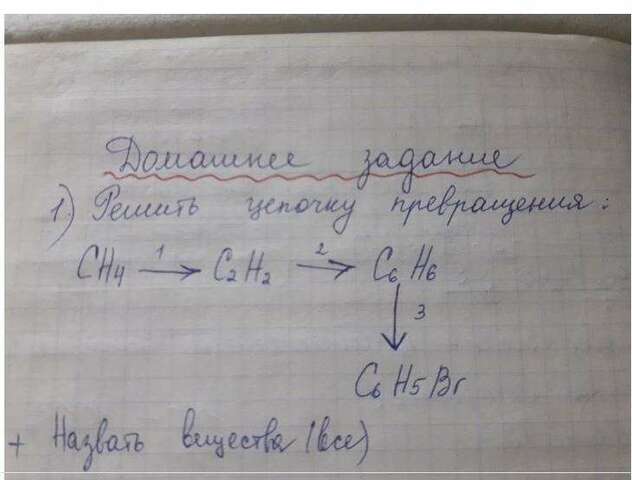 Домашнее задание
1) Решить цепочку превращения:
CH₄ —1→ C₂H₂ —2→ C₆H₆
↓ 3
C₆H₅Br
+ Назвать вещества (все)